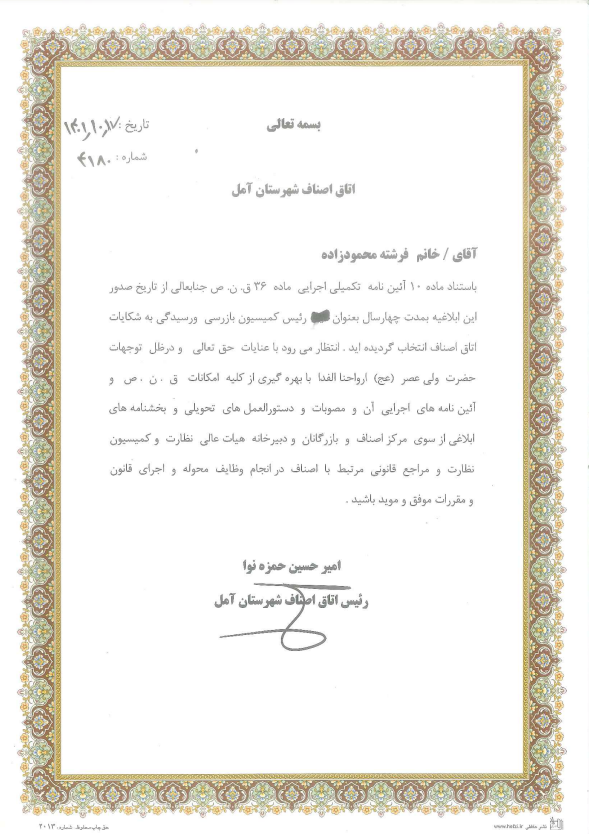 بسمه تعالی
تاریخ : ۱۴۰۱/۱۰/۱۷
شماره : ۴۱۸۰
اتاق اصناف شهرستان آمل
آقای / خانم فرشته محمودزاده
باستناد ماده ۱۰ آئین نامه تکمیلی اجرایی ماده ۳۶ ق. ن. ص جنابعالی از تاریخ صدور
این ابلاغیه بمدت چهارسال بعنوان رئیس کمیسیون بازرسی ورسیدگی به شکایات
اتاق اصناف انتخاب گردیده اید . انتظار می رود با عنایات حق تعالی و درظل توجهات
حضرت ولی عصر (عج) ارواحنا الفدا با بهره گیری از کلیه امکانات ق . ن . ص و
آئین نامه های اجرایی آن و مصوبات و دستورالعمل های تحویلی و بخشنامه های
ابلاغی از سوی مرکز اصناف و بازرگانان و دبیرخانه هیات عالی نظارت و کمیسیون
نظارت و مراجع قانونی مرتبط با اصناف در انجام وظایف محوله و اجرای قانون
و مقررات موفق و موید باشید .
امیر حسین حمزه نوا
رئیس اتاق اصناف شهرستان آمل
حق چاپ محفوظ. شماره: ۲۰۱۳